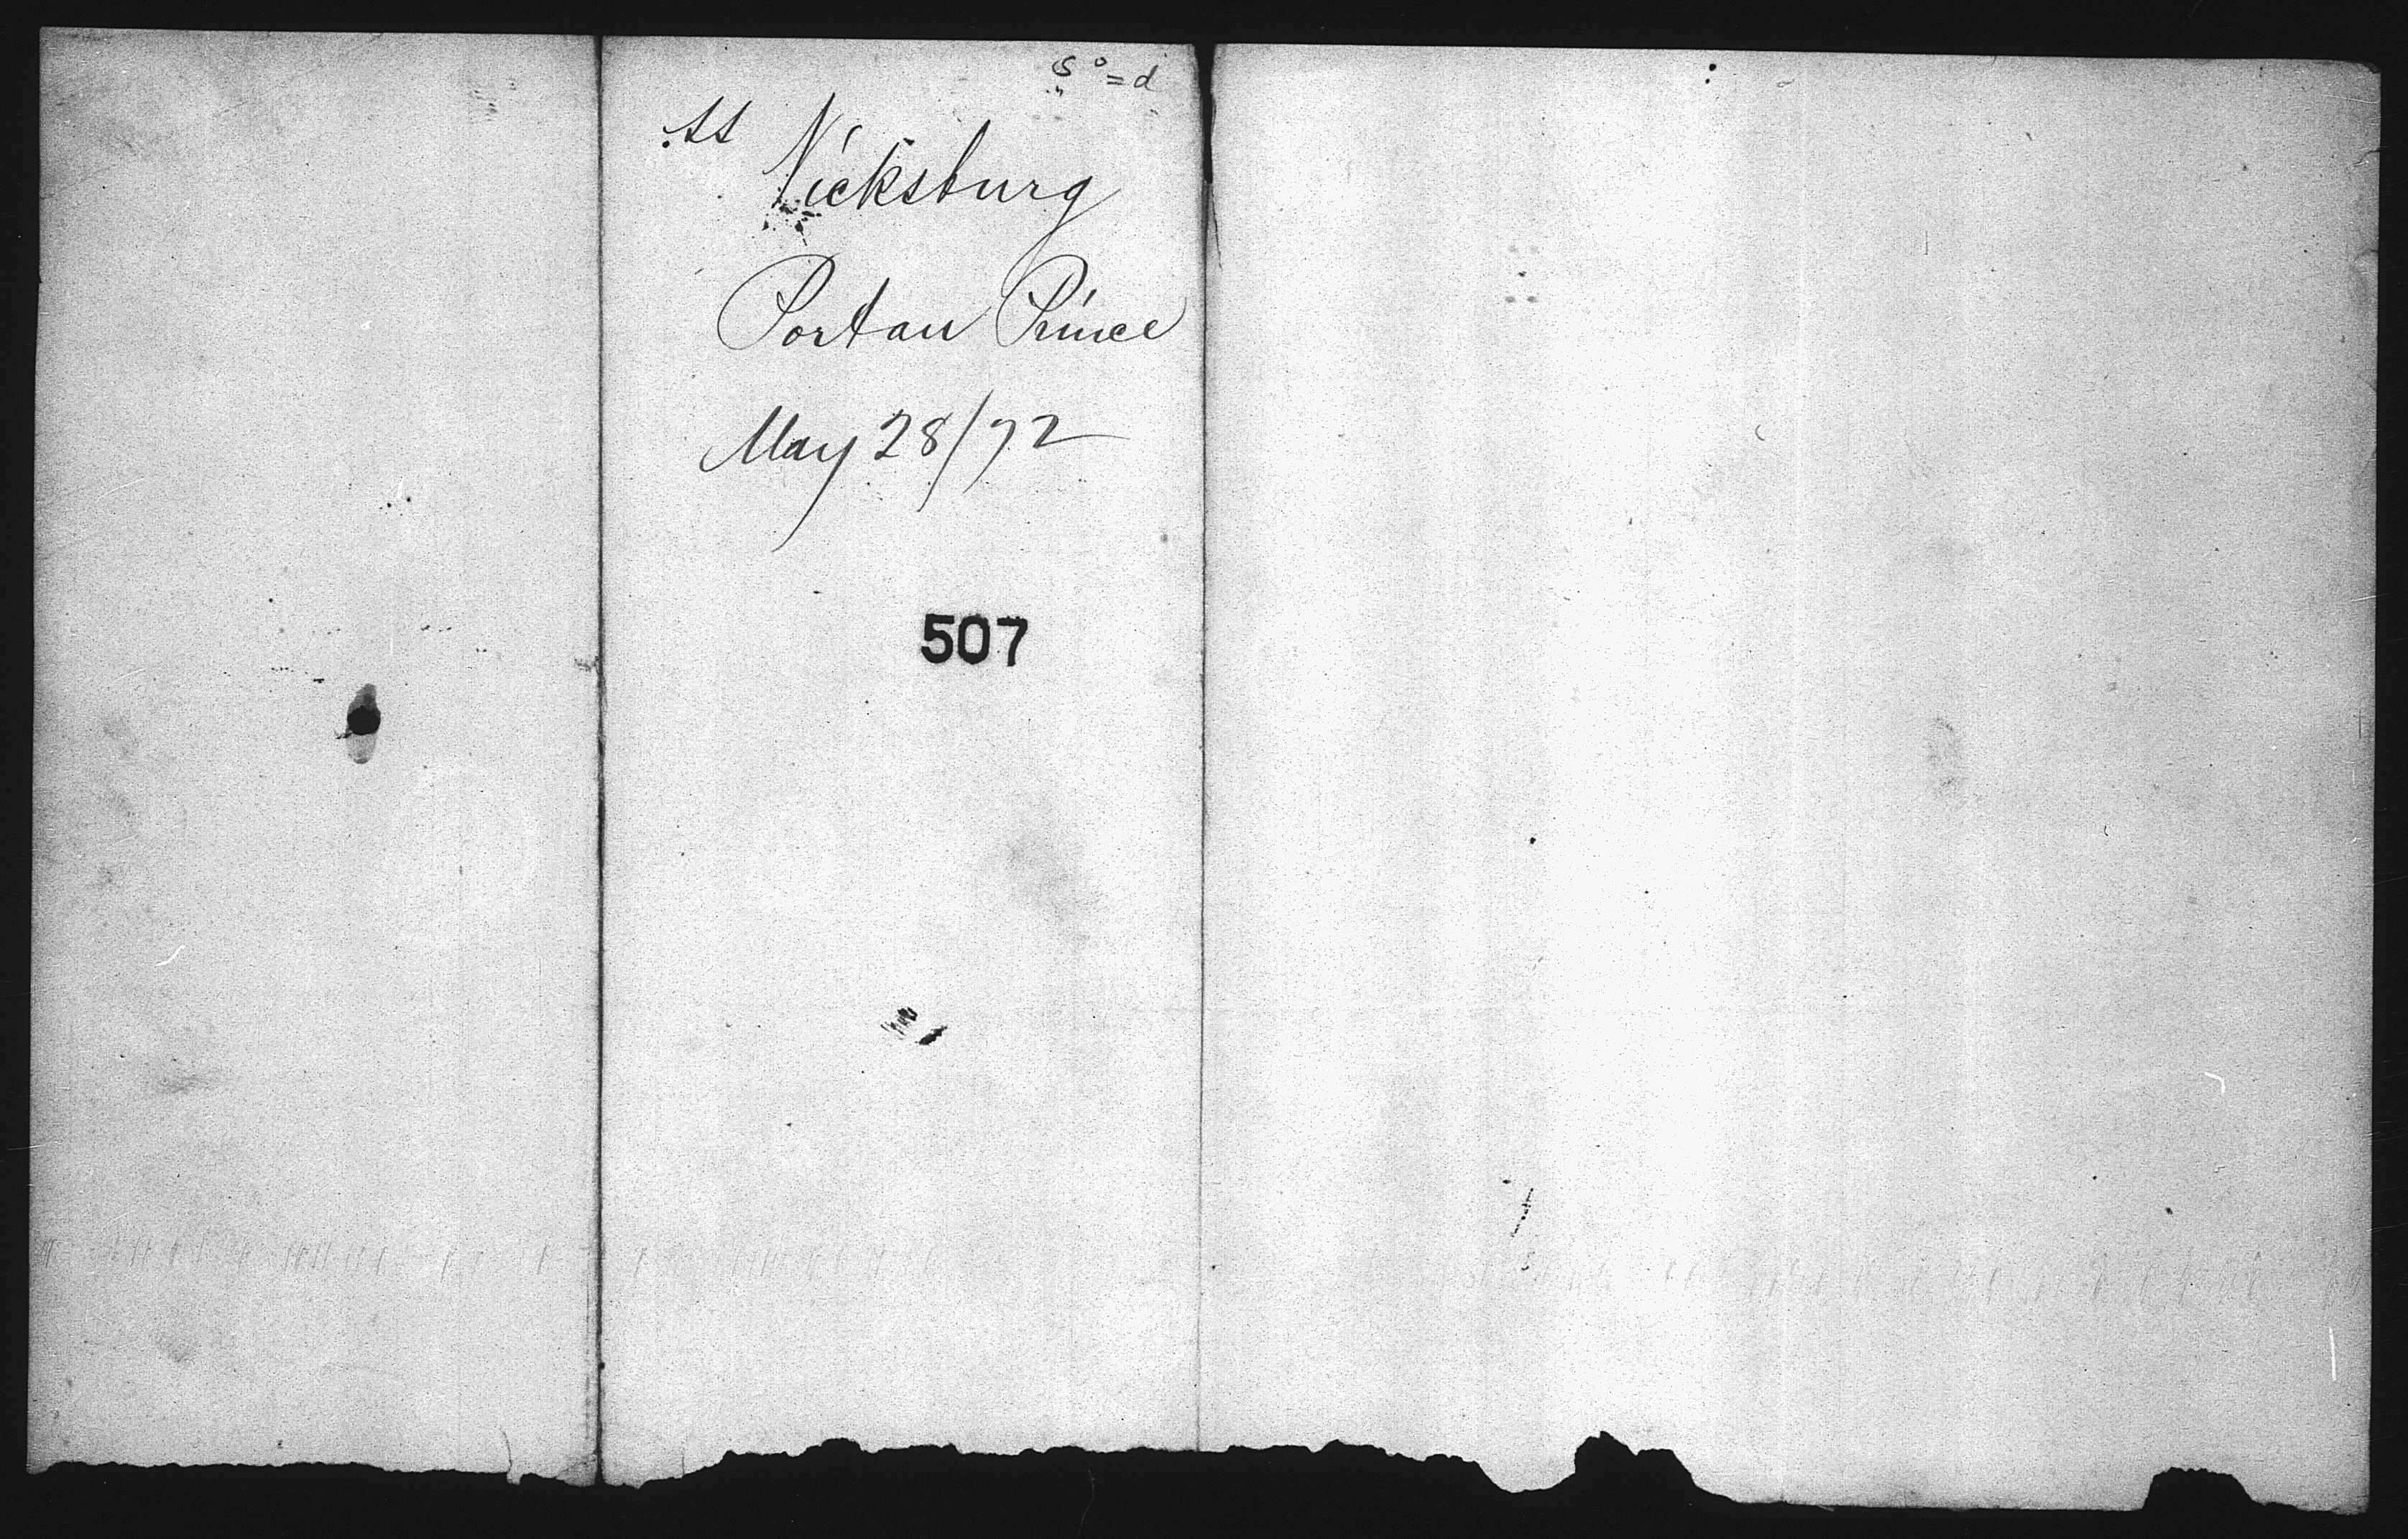 SS Vicksburg
Port au Prince
May 28/72
507